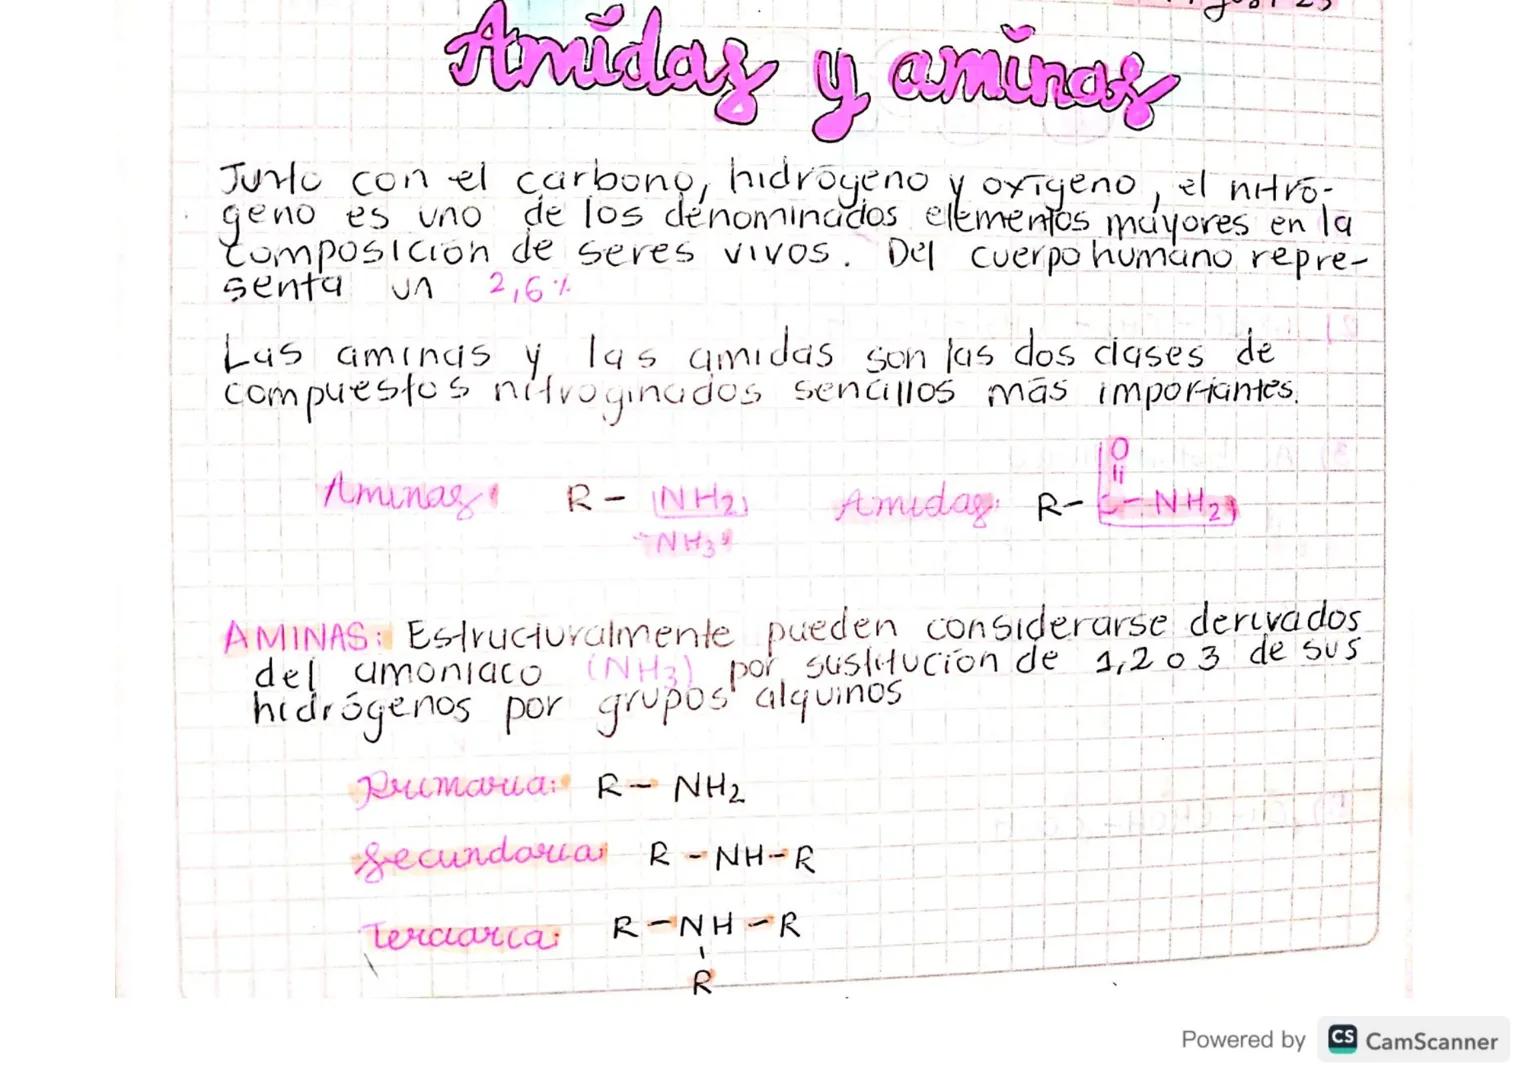 Amidas y aminas
Junto con el carbono, hidrógeno y oxígeno, el nitró-
geno es uno de los denominados elementos mayores en la
composición de seres vivos. Del cuerpo humano repre-
senta un 2,6%
Las aminas y las amidas son las dos clases de
compuestos nitroginados sencillos más importantes.
Aminas: R - NH2 Amidas: R - C - NH2
O
NH3
AMINAS: Estructuralmente pueden considerarse derivados
del amoniaco (NH3) por sustitución de 1,2 o 3 de sus
hidrógenos por grupos alquinos
Primaria: R - NH2
Secundaria: R - NH - R
Terciaria: R - NH - R
R
Powered by CS CamScanner